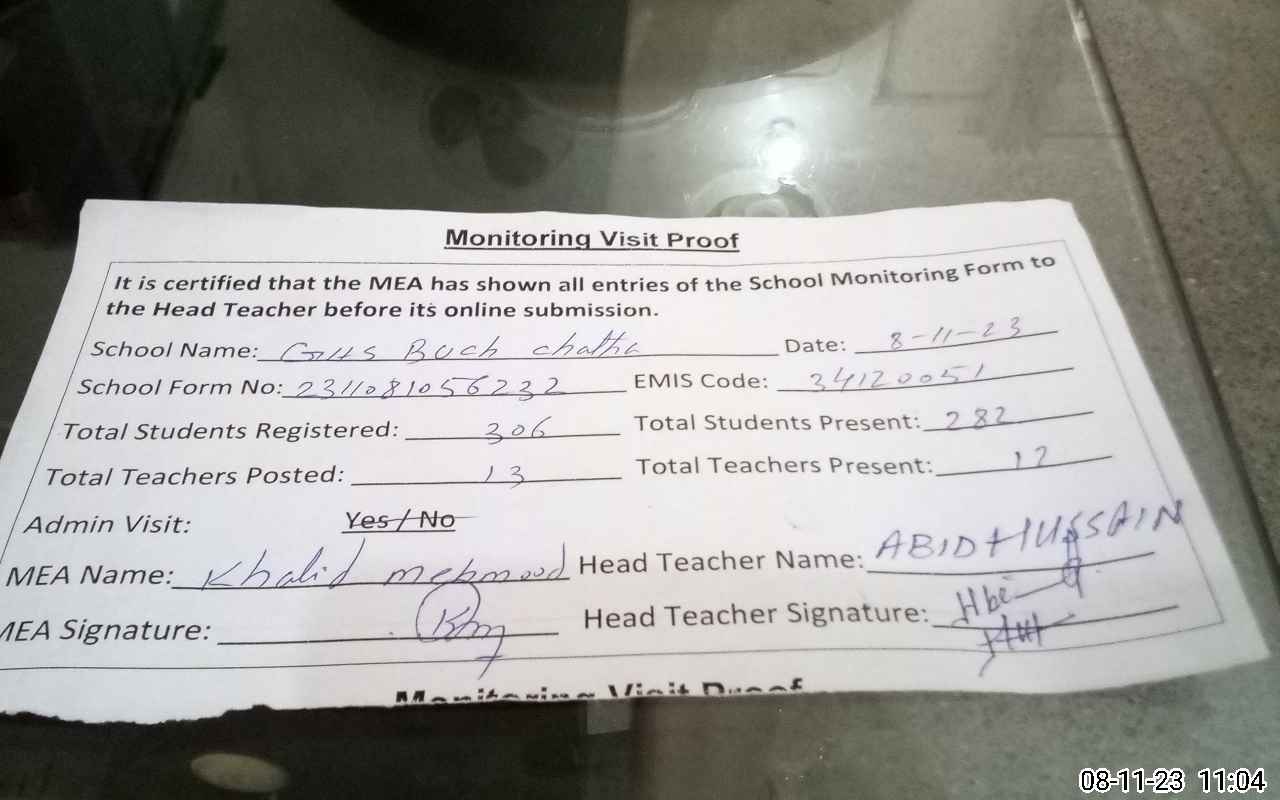 Monitoring Visit Proof
It is certified that the MEA has shown all entries of the School Monitoring Form to
the Head Teacher before its online submission.
School Name: GHS Buch chatha Date: 8-11-23
School Form No: 2311081056232 EMIS Code: 34120051
Total Students Registered: 306 Total Students Present: 282
Total Teachers Posted: 13 Total Teachers Present: 12
Admin Visit: Yes / No
MEA Name: Khalid mehmood Head Teacher Name: ABID HUSSAIN
MEA Signature: Head Teacher Signature:
Monitoring Visit Proof
08-11-23 11:04